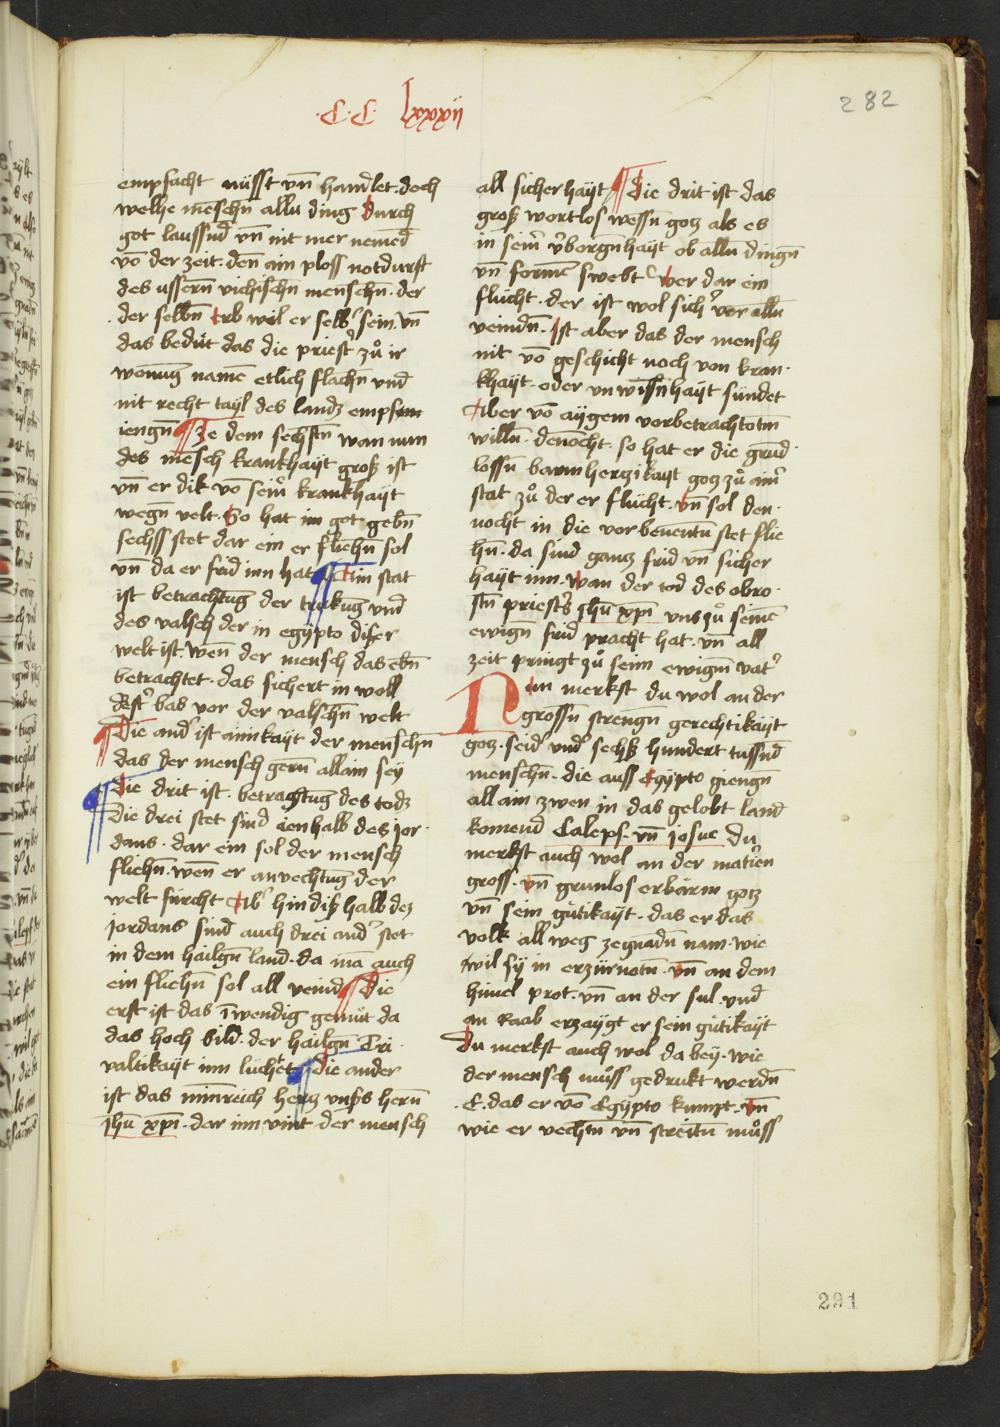 ·C·C· lxxxij
282
empfacht nüsst vn̄ handlet · doch
welhe mēschn̄ allu ding Durch
got laussnd̄ vn̄ nit mer nemēd
vō der zeit · den̄ ain ploss notdurft
des ussern̄ vichischn̄ menschn̄ · der
· der selbn̄ erb wil er selb sein vn̄
das bedüt das die priest zů ir
wonūg namē etlich flachn̄ vnd
nit recht tayl des landz empfien
iengn̄ ¶ Ze dem sechstn̄ wan nun
des mēsch krankhayt groß ist
vn̄ er dik vō seim̄ krankhayt
wegn̄ velt · So hat im got gebn̄
sechss stet dar ein er fliehn̄ sol
vn̄ da er frid inn hat ¶ Ain stat
ist betrachtūg der vnd
des valsch der in egypto diser
welt ist · wen̄ der mensch das ebn̄
betrachtet · das sichert in woll
dest bas vor der valschn̄ welt
¶ Die and ist ainikayt der menschn̄
das der mensch gern̄ allain sey
¶ Die drit ist · betrachtūg des todz
Die drei stet sind ienhalb des jor·
dans · dar ein sol der mensch
fliehn̄ · wen̄ er anvechtūg der
welt fürcht Ab hindiß halb dez
jordans sind auch drei and stet
in dem hailgn̄ land · da mā auch
ein fliehn̄ sol all veind ¶ Die
erst ist das īwendig gemüt da
das hoch bild · der hailgn̄ Tri·
valtikayt inn lüchtet ¶ Die ander
ist das minreich hertz vnss hern̄
jhu xpi · dar inn vint der mensch
all sicherhayt ¶ Die drit ist das
groß wortlos wessn̄ gotz als es
in seim̄ vborgnhayt ob allu dingn̄
vn̄ formē swebt wer dar ein
flücht · der ist wol sich vor allu
veindn̄ · Ist aber das der mensch
nit vō geschicht noch von kran·
khayt · oder vnwissnhayt sündet
Aber vō aygem vorbetrachtotm
willn̄ · dēnocht · so hat er die grūd
lossn̄ barmherzikayt gotz zů aim̄
stat zů der er flücht · vn̄ sol den·
nocht in die vorbenentn̄ stet flie
hn̄ · da sind gantz frid vn̄ sicher
hayt inn · wan der tod des obro·
stn̄ priests jhu xpi vns zů seinē
ewign̄ frid pracht hat · vn̄ all
zeit pringt zů seim ewigm vat
Nun merkst du wol an der
grossn̄ strengn̄ gerechtikayt
gotz · seid vnd sechß hundert tussnd
menschn̄ · die auss Egypto giengn̄
allain zwen in das gelobt land
komend Caleph · vn̄ josue Du
merkst auch wol an der matien
gross · vn̄ grunlos erbärm gotz
vn̄ sein gütikayt · das er das
volk all weg ze gnadn̄ nam · wie
wil sy in erzürnotn̄ · vn̄ an dem
himel prot · vn̄ an der sul · vnd
an Raab erzaygt er sein gütikayt
Du merkst auch wol da bey · wie
der mensch muss gedrukt werdn̄
· E · das er vō Egypto kumpt · vn̄
wie er vechtn̄ vn̄ streitn̄ muss
291